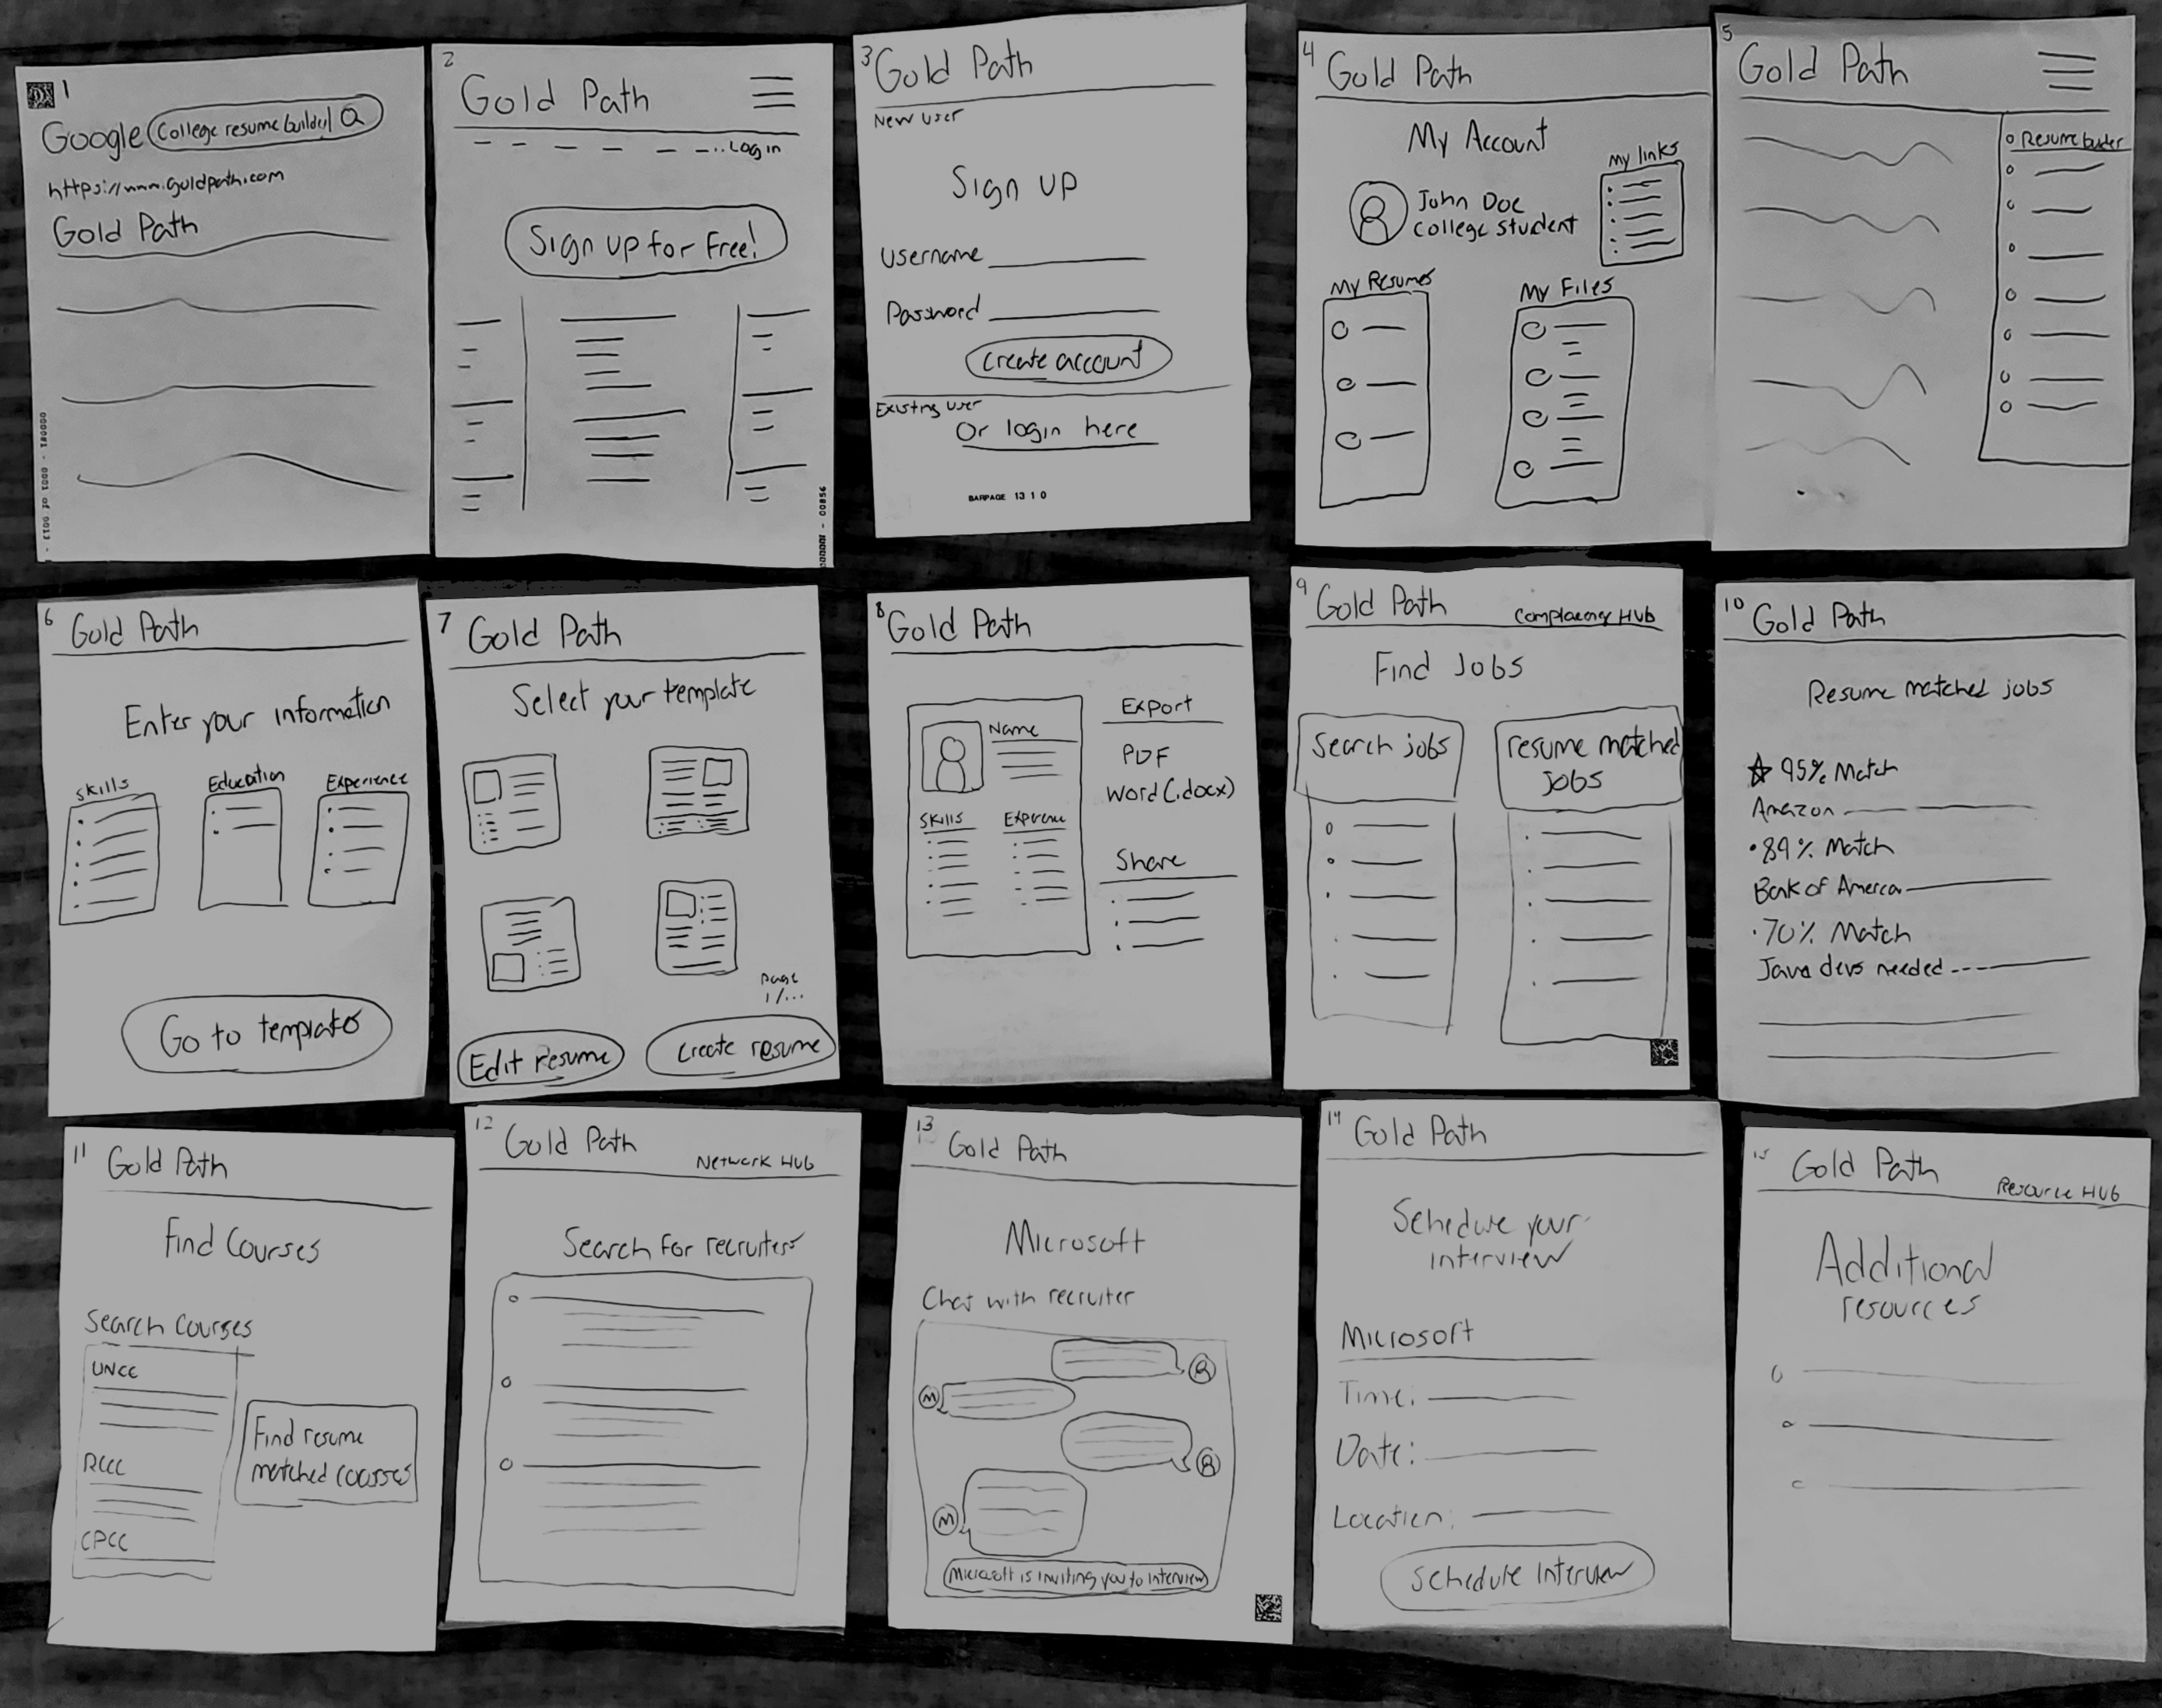 1
Google College resume builder
https://www.goldpath.com
Gold Path
2
Gold Path
Log in
Sign up for Free!
3 Gold Path
New User
Sign up
Username
Password
Create account
Existing User
Or login here
BARPAGE 13 1 0
4 Gold Path
My Account
My links
John Doe
College student
My Resumes
My Files
5
Gold Path
6
Gold Path
Enter your information
Skills
Education
Experience
Go to templates
7
Gold Path
Select your template
page
1/...
Edit resume
Create resume
8
Gold Path
Name
Skills
Export
PDF
Word (.docx)
Share
9
Gold Path
HUB
Find Jobs
Search jobs
resume matched
jobs
10
Gold Path
Resume matched jobs
95% Match
Amazon
89% Match
Bank of
70% Match
Java devs needed
11
Gold Path
Find Courses
Search Courses
UNCC
RCCC
CPCC
Find resume
matched courses
12
Gold Path
Network HUB
Search for recruiters
13
Gold Path
Microsoft
Chat with recruiter
M
M
Microsoft is inviting you to interview
14
Gold Path
Schedule your
interview
Microsoft
Time:
Date:
Location:
Schedule Interview
15
Gold Path
Resource HUB
Additional
resources